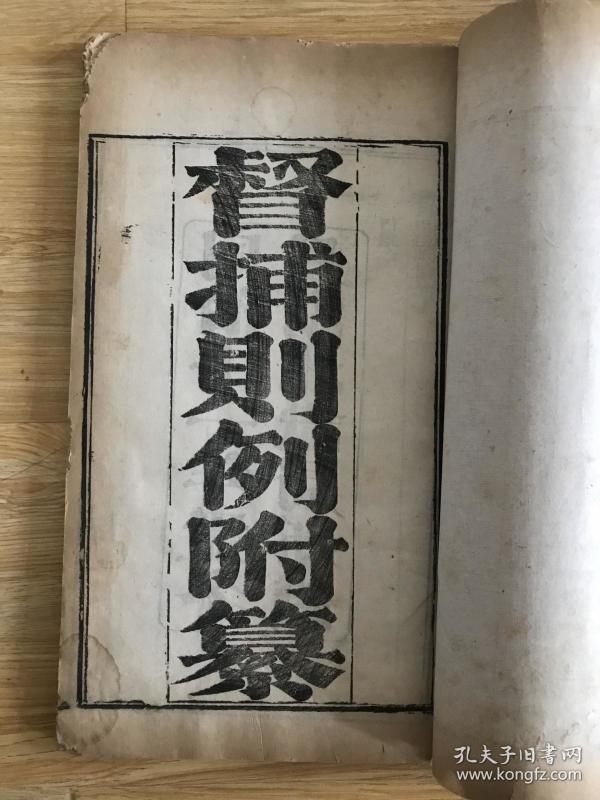 督捕則例附纂
孔夫子旧书网
www.kongfz.com